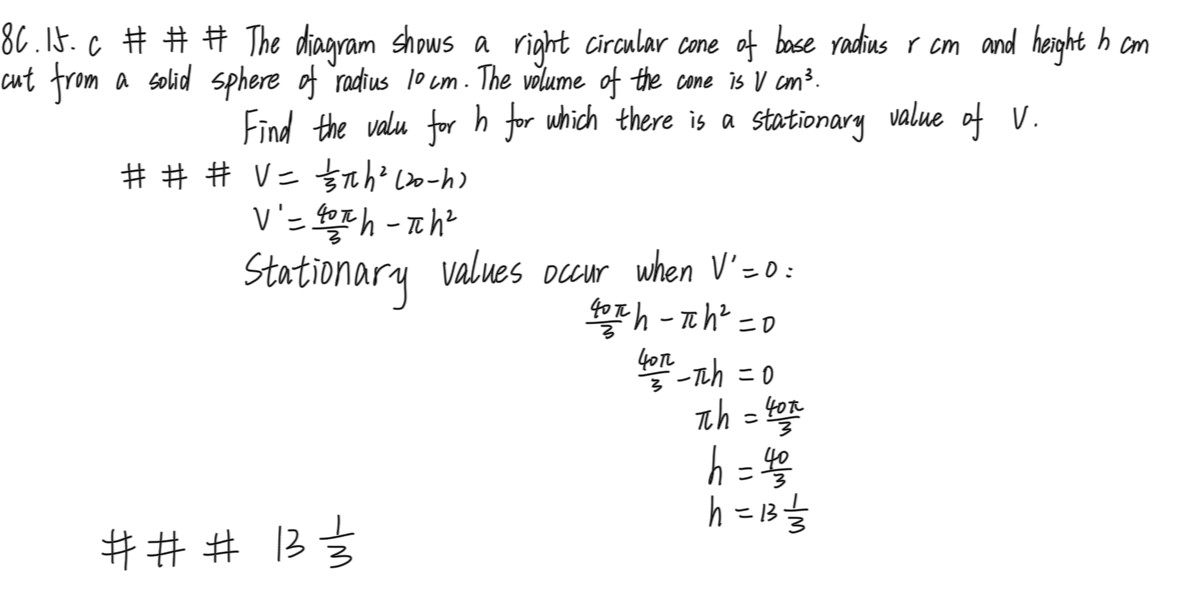 8C.15.c # # # The diagram shows a right circular cone of base radius r cm and height h cm
cut from a solid sphere of radius 10 cm. The volume of the cone is V cm³.
Find the valu for h for which there is a stationary value of V.
# # # V = 1/3 πh²(20-h)
V' = 40π/3 h - πh²
Stationary values occur when V' = 0:
40π/3 h - πh² = 0
40π/3 - πh = 0
πh = 40π/3
h = 40/3
h = 13 1/3
# # # 13 1/3